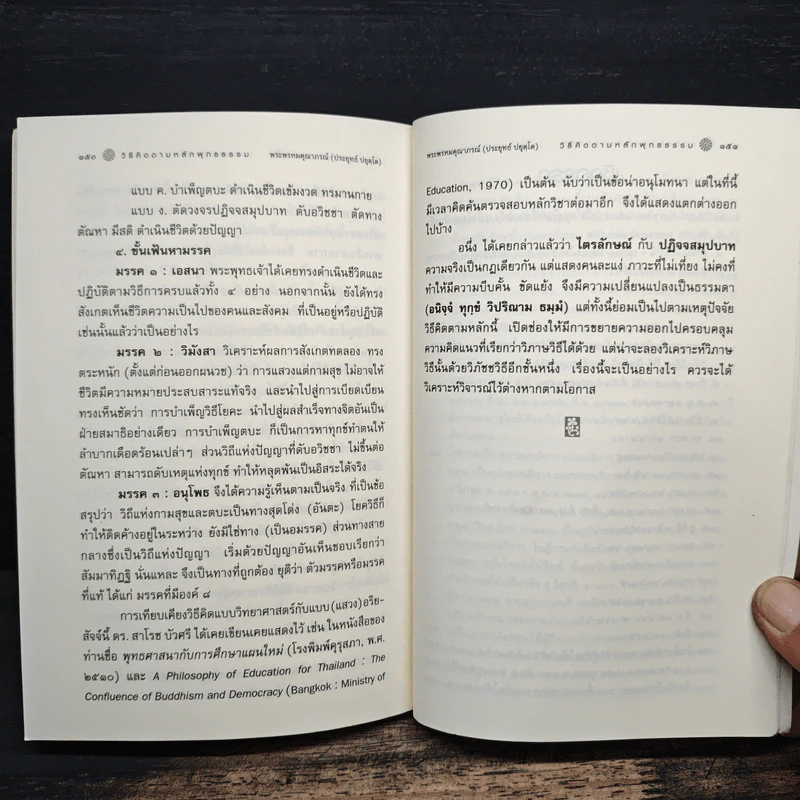 ๑๕๐ วิธีคิดตามหลักพุทธธรรม พระพรหมคุณาภรณ์ (ประยุทธ์ ปยุตฺโต)
แบบ ค. บำเพ็ญตบะ ดำเนินชีวิตเข้มงวด ทรมานกาย
แบบ ง. ตัดวงจรปฏิจจสมุปบาท ดับอวิชชา ตัดทาง
ตัณหา มีสติ ดำเนินชีวิตด้วยปัญญา
๔. ขั้นเฟ้นหามรรค
มรรค ๑ : เอสนา พระพุทธเจ้าได้เคยทรงดำเนินชีวิตและ
ปฏิบัติตามวิธีการครบแล้วทั้ง ๔ อย่าง นอกจากนั้น ยังได้ทรง
สังเกตเห็นชีวิตความเป็นไปของคนและสังคม ที่เป็นอยู่หรือปฏิบัติ
เช่นนั้นแล้วว่าเป็นอย่างไร
มรรค ๒ : วิมังสา วิเคราะห์ผลการสังเกตทดลอง ทรง
ตระหนัก (ตั้งแต่ก่อนออกผนวช) ว่า การแสวงแต่กามสุข ไม่อาจให้
ชีวิตมีความหมายประสบสาระแท้จริง และนำไปสู่การเบียดเบียน
ทรงเห็นชัดว่า การบำเพ็ญวิธีโยคะ นำไปสู่ผลสำเร็จทางจิตอันเป็น
ฝ่ายสมาธิอย่างเดียว การบำเพ็ญตบะ ก็เป็นการหาทุกข์ทำตนให้
ลำบากเดือดร้อนเปล่าๆ ส่วนวิถีแห่งปัญญาที่ดับอวิชชา ไม่ขึ้นต่อ
ตัณหา สามารถดับเหตุแห่งทุกข์ ทำให้หลุดพ้นเป็นอิสระได้จริง
มรรค ๓ : อนุโพธ จึงได้ความรู้เห็นตามเป็นจริง ที่เป็นข้อ
สรุปว่า วิถีแห่งกามสุขและตบะเป็นทางสุดโต่ง (อันตะ) โยควิธีก็
ทำให้ติดค้างอยู่ในระหว่าง ยังมิใช่ทาง (เป็นอมรรค) ส่วนทางสาย
กลางซึ่งเป็นวิถีแห่งปัญญา เริ่มด้วยปัญญาอันเห็นชอบเรียกว่า
สัมมาทิฏฐิ นั่นแหละ จึงเป็นทางที่ถูกต้อง ยุติว่า ตัวมรรคหรือมรรค
ที่แท้ ได้แก่ มรรคที่มีองค์ ๘
การเทียบเคียงวิธีคิดแบบวิทยาศาสตร์กับแบบ(แสวง)อริย-
สัจจ์นี้ ดร. สาโรช บัวศรี ได้เคยเขียนเคยแสดงไว้ เช่น ในหนังสือของ
ท่านชื่อ พุทธศาสนากับการศึกษาแผนใหม่ (โรงพิมพ์คุรุสภา, พ.ศ.
๒๕๑๐) และ A Philosophy of Education for Thailand : The
Confluence of Buddhism and Democracy (Bangkok : Ministry of
พระพรหมคุณาภรณ์ (ประยุทธ์ ปยุตฺโต) วิธีคิดตามหลักพุทธธรรม ๑๕๑
Education, 1970) เป็นต้น นับว่าเป็นข้อน่าอนุโมทนา แต่ในที่นี้
มีเวลาคิดค้นตรวจสอบหลักวิชาต่อมาอีก จึงได้แสดงแตกต่างออก
ไปบ้าง
อนึ่ง ได้เคยกล่าวแล้วว่า ไตรลักษณ์ กับ ปฏิจจสมุปบาท
ความจริงเป็นกฎเดียวกัน แต่แสดงคนละแง่ ภาวะที่ไม่เที่ยง ไม่คงที่
ทำให้มีความบีบคั้น ขัดแย้ง จึงมีความเปลี่ยนแปลงเป็นธรรมดา
(อนิจฺจํ ทุกฺขํ วิปริณาม ธมฺมํ) แต่ทั้งนี้ย่อมเป็นไปตามเหตุปัจจัย
วิธีคิดตามหลักนี้ เปิดช่องให้มีการขยายความออกไปครอบคลุม
ความคิดแนวที่เรียกว่าวิภาษวิธีได้ด้วย แต่น่าจะลองวิเคราะห์วิภาษ
วิธีนั้นด้วยวิภัชชวิธีอีกชั้นหนึ่ง เรื่องนี้จะเป็นอย่างไร ควรจะได้
วิเคราะห์วิจารณ์ไว้ต่างหากตามโอกาส